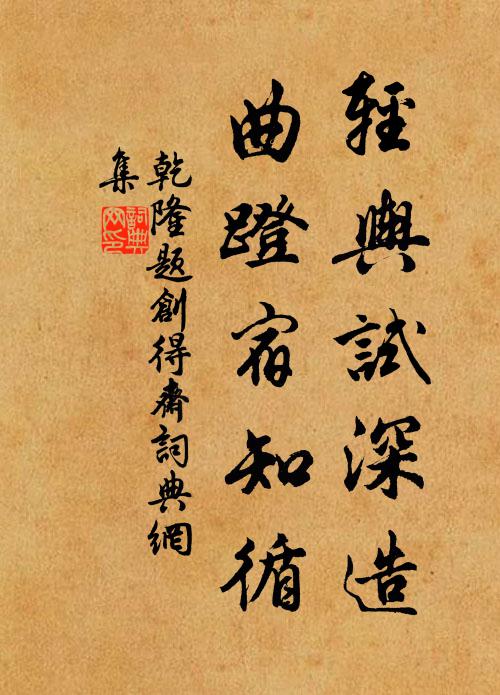 輕輿試深造
曲蹬宿知循
乾隆題創得齋詞典網
集
詞典
网印